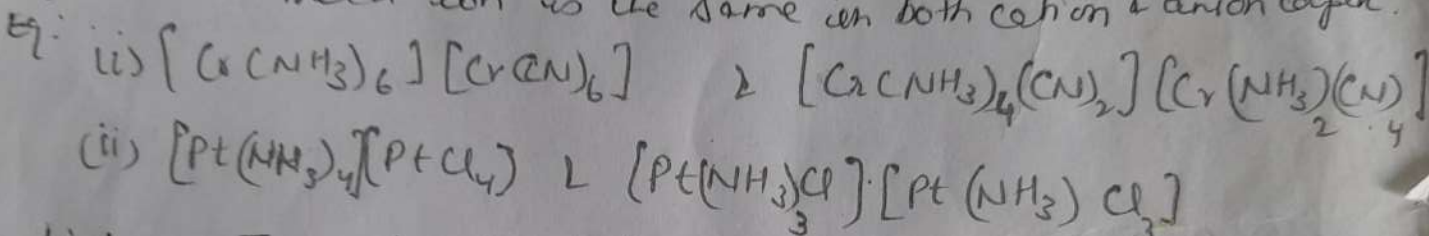 is the same in both cation & anion
Eg: (i) [Cr(NH3)6][Cr(CN)6] & [Cr(NH3)4(CN)2][Cr(NH3)2(CN)4]
(ii) [Pt(NH3)4][PtCl4] & [Pt(NH3)3Cl].[Pt(NH3)Cl3]